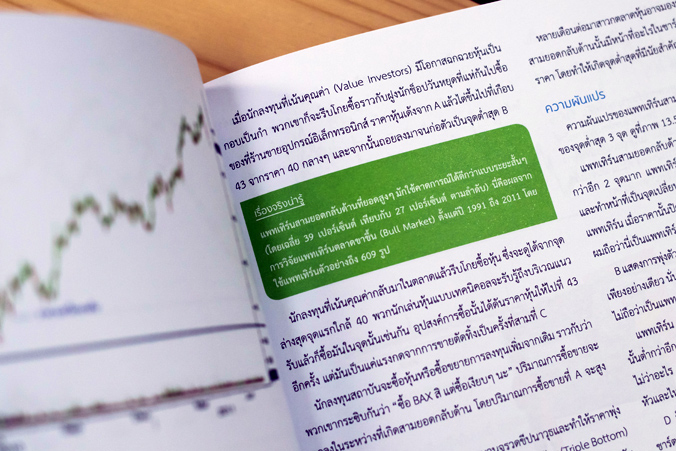 เมื่อนักลงทุนที่เน้นคุณค่า (Value Investors) มีโอกาสฉกฉวยหุ้นเป็น
กอบเป็นกำ พวกเขาก็จะรีบโกยซื้อราวกับฝูงนักช็อปวันหยุดที่แห่กันไปซื้อ
ของที่ร้านขายอุปกรณ์อิเล็กทรอนิกส์ ราคาหุ้นเด้งจาก A แล้วไต่ขึ้นไปที่เกือบ
43 จากราคา 40 กลางๆ และจากนั้นถอยลงมาจนก่อตัวเป็นจุดต่ำสุด B
เรื่องจริงน่ารู้
แพทเทิร์นสามยอดกลับด้านที่ยอดสูงๆ มักใช้คาดการณ์ได้ดีกว่าแบบระยะสั้นๆ
(โดยเฉลี่ย 39 เปอร์เซ็นต์ เทียบกับ 27 เปอร์เซ็นต์ ตามลำดับ) นี่คือผลจาก
การวิจัยแพทเทิร์นตลาดขาขึ้น (Bull Market) ตั้งแต่ปี 1991 ถึง 2011 โดย
ใช้แพทเทิร์นตัวอย่างถึง 609 รูป
นักลงทุนที่เน้นคุณค่ากลับมาในตลาดแล้วรีบโกยซื้อหุ้น ซึ่งจะดูได้จากจุด
ล่างสุดจุดแรกใกล้ 40 พวกนักเล่นหุ้นแบบเทคนิคอลจะรับรู้ถึงบริเวณแนว
รับแล้วก็ซื้อมันในจุดนั้นเช่นกัน อุปสงค์การซื้อนั้นได้ดันราคาหุ้นให้ไปที่ 43
อีกครั้ง แต่มันเป็นแค่แรงกดจากการขายตัดทิ้งเป็นครั้งที่สามที่ C
นักลงทุนสถาบันจะซื้อหุ้นหรือซื้อขยายการลงทุนเพิ่มจากเดิม ราวกับว่า
พวกเขากระซิบกันว่า “ซื้อ BAX สิ แต่ซื้อเงียบๆ นะ” ปริมาณการซื้อขายจะ
ลดลงในระหว่างที่เกิดสามยอดกลับด้าน โดยปริมาณการซื้อขายที่ A จะสูง
(Triple Bottom)
หลายเดือนต่อมาสาวกตลาดหุ้นอาจมอง
สามยอดกลับด้านนั้นมีหน้าที่อะไรในชาร์
ราคา โดยทำให้เกิดจุดต่ำสุดที่มีนัยสำคัญ
ความผันแปร
ความผันแปรของแพทเทิร์นสาม
ของจุดต่ำสุด 3 จุด ดูที่ภาพ 13.5
แพทเทิร์นสามยอดกลับด้า
กว่าอีก 2 จุดมาก แพทเทิร์
และทำหน้าที่เป็นจุดเปลี่ย
แพทเทิร์น เมื่อราคานั้นปิด
ผมถือว่านี่เป็นแพทเทิร์
B แสดงการพุ่งตัว
เพียงอย่างเดียว นั่น
ไม่ถือว่าเป็นแพท
แพทเทิร์น
นั้นต่ำกว่าอีก
ไม่ว่าอะไร
หัวและไห
D